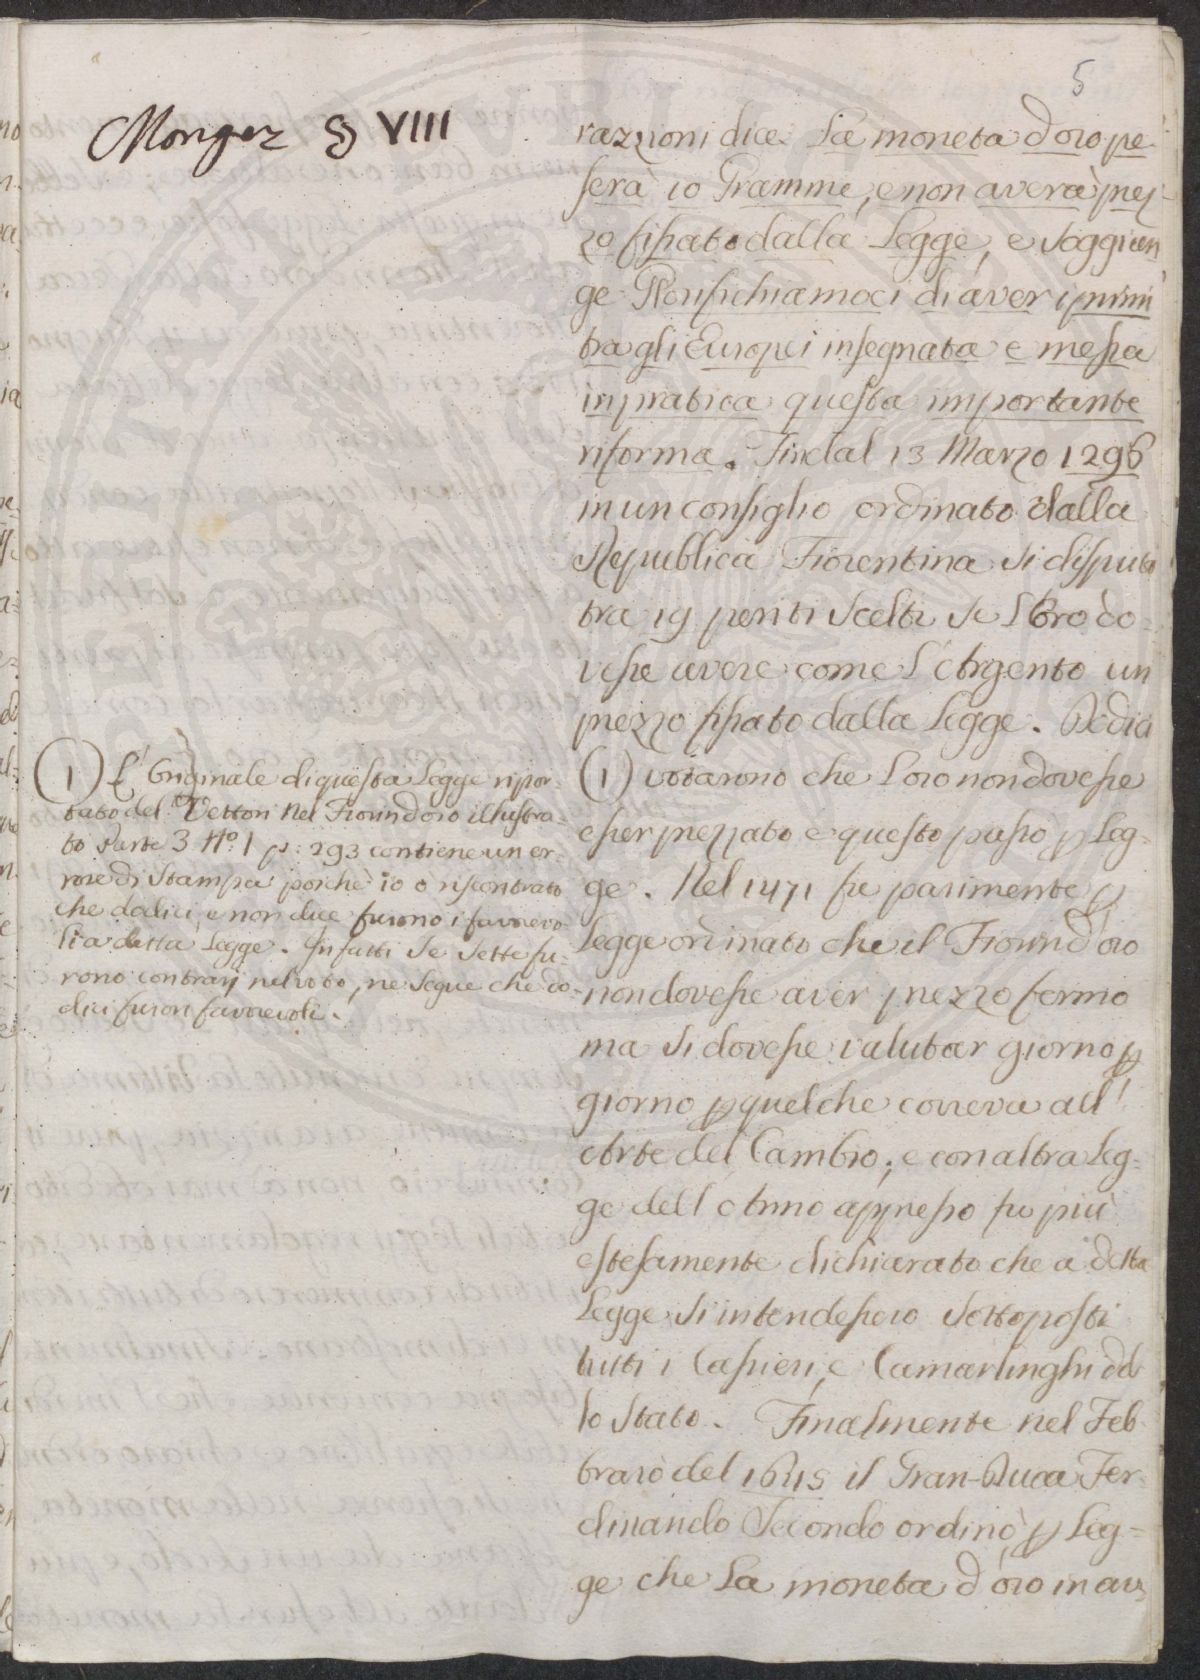 5
Mongez § VIII
razzioni dice La moneta d'oro pe-
serà 10 Gramme, e non averà prez-
zo fissato dalla Legge, e soggiun
ge Plonsichiamoci di aver i primi
tra gli Europei insegnata e messa
in pratica questa importante
riforma. Fin dal 13 Marzo 1296
in un consiglio ordinato dalla
Republica Fiorentina si disputò
tra 19 periti scelti se l'Oro do-
vesse avere come l'Argento un
prezzo fissato dalla Legge. Dodici
(1) votarono che l'oro non dovesse
esser prezzato e questo passò p Leg-
ge. Nel 1471 fu parimente p
Legge ordinato che il Fiorin d'oro
non dovesse aver prezzo fermo
ma si dovesse valutar giorno p
giorno p quel che correva all'
Arte del Cambio; e con altra Leg-
ge dell Anno appresso fu più
estesamente dichiarato che a detta
Legge s'intendessero sottoposti
tutti i Cassieri, e Camarlinghi del
lo Stato. Finalmente nel Feb-
braio del 1645 il Gran-Duca Fer-
dinando Secondo ordinò p Leg-
ge che La moneta d'oro in av
(1) L' Originale di questa Legge ripor-
tato del Vettori nel Fiorin d'oro illustra-
to Parte 3 No. 1 p: 293 contiene un er-
rore di stampa poichè io ò riscontrato
che dodici e non due furono i favorevo-
li a detta Legge. Infatti se sette fu-
rono contrarj nel voto, ne segue che do-
dici furon favorevoli.